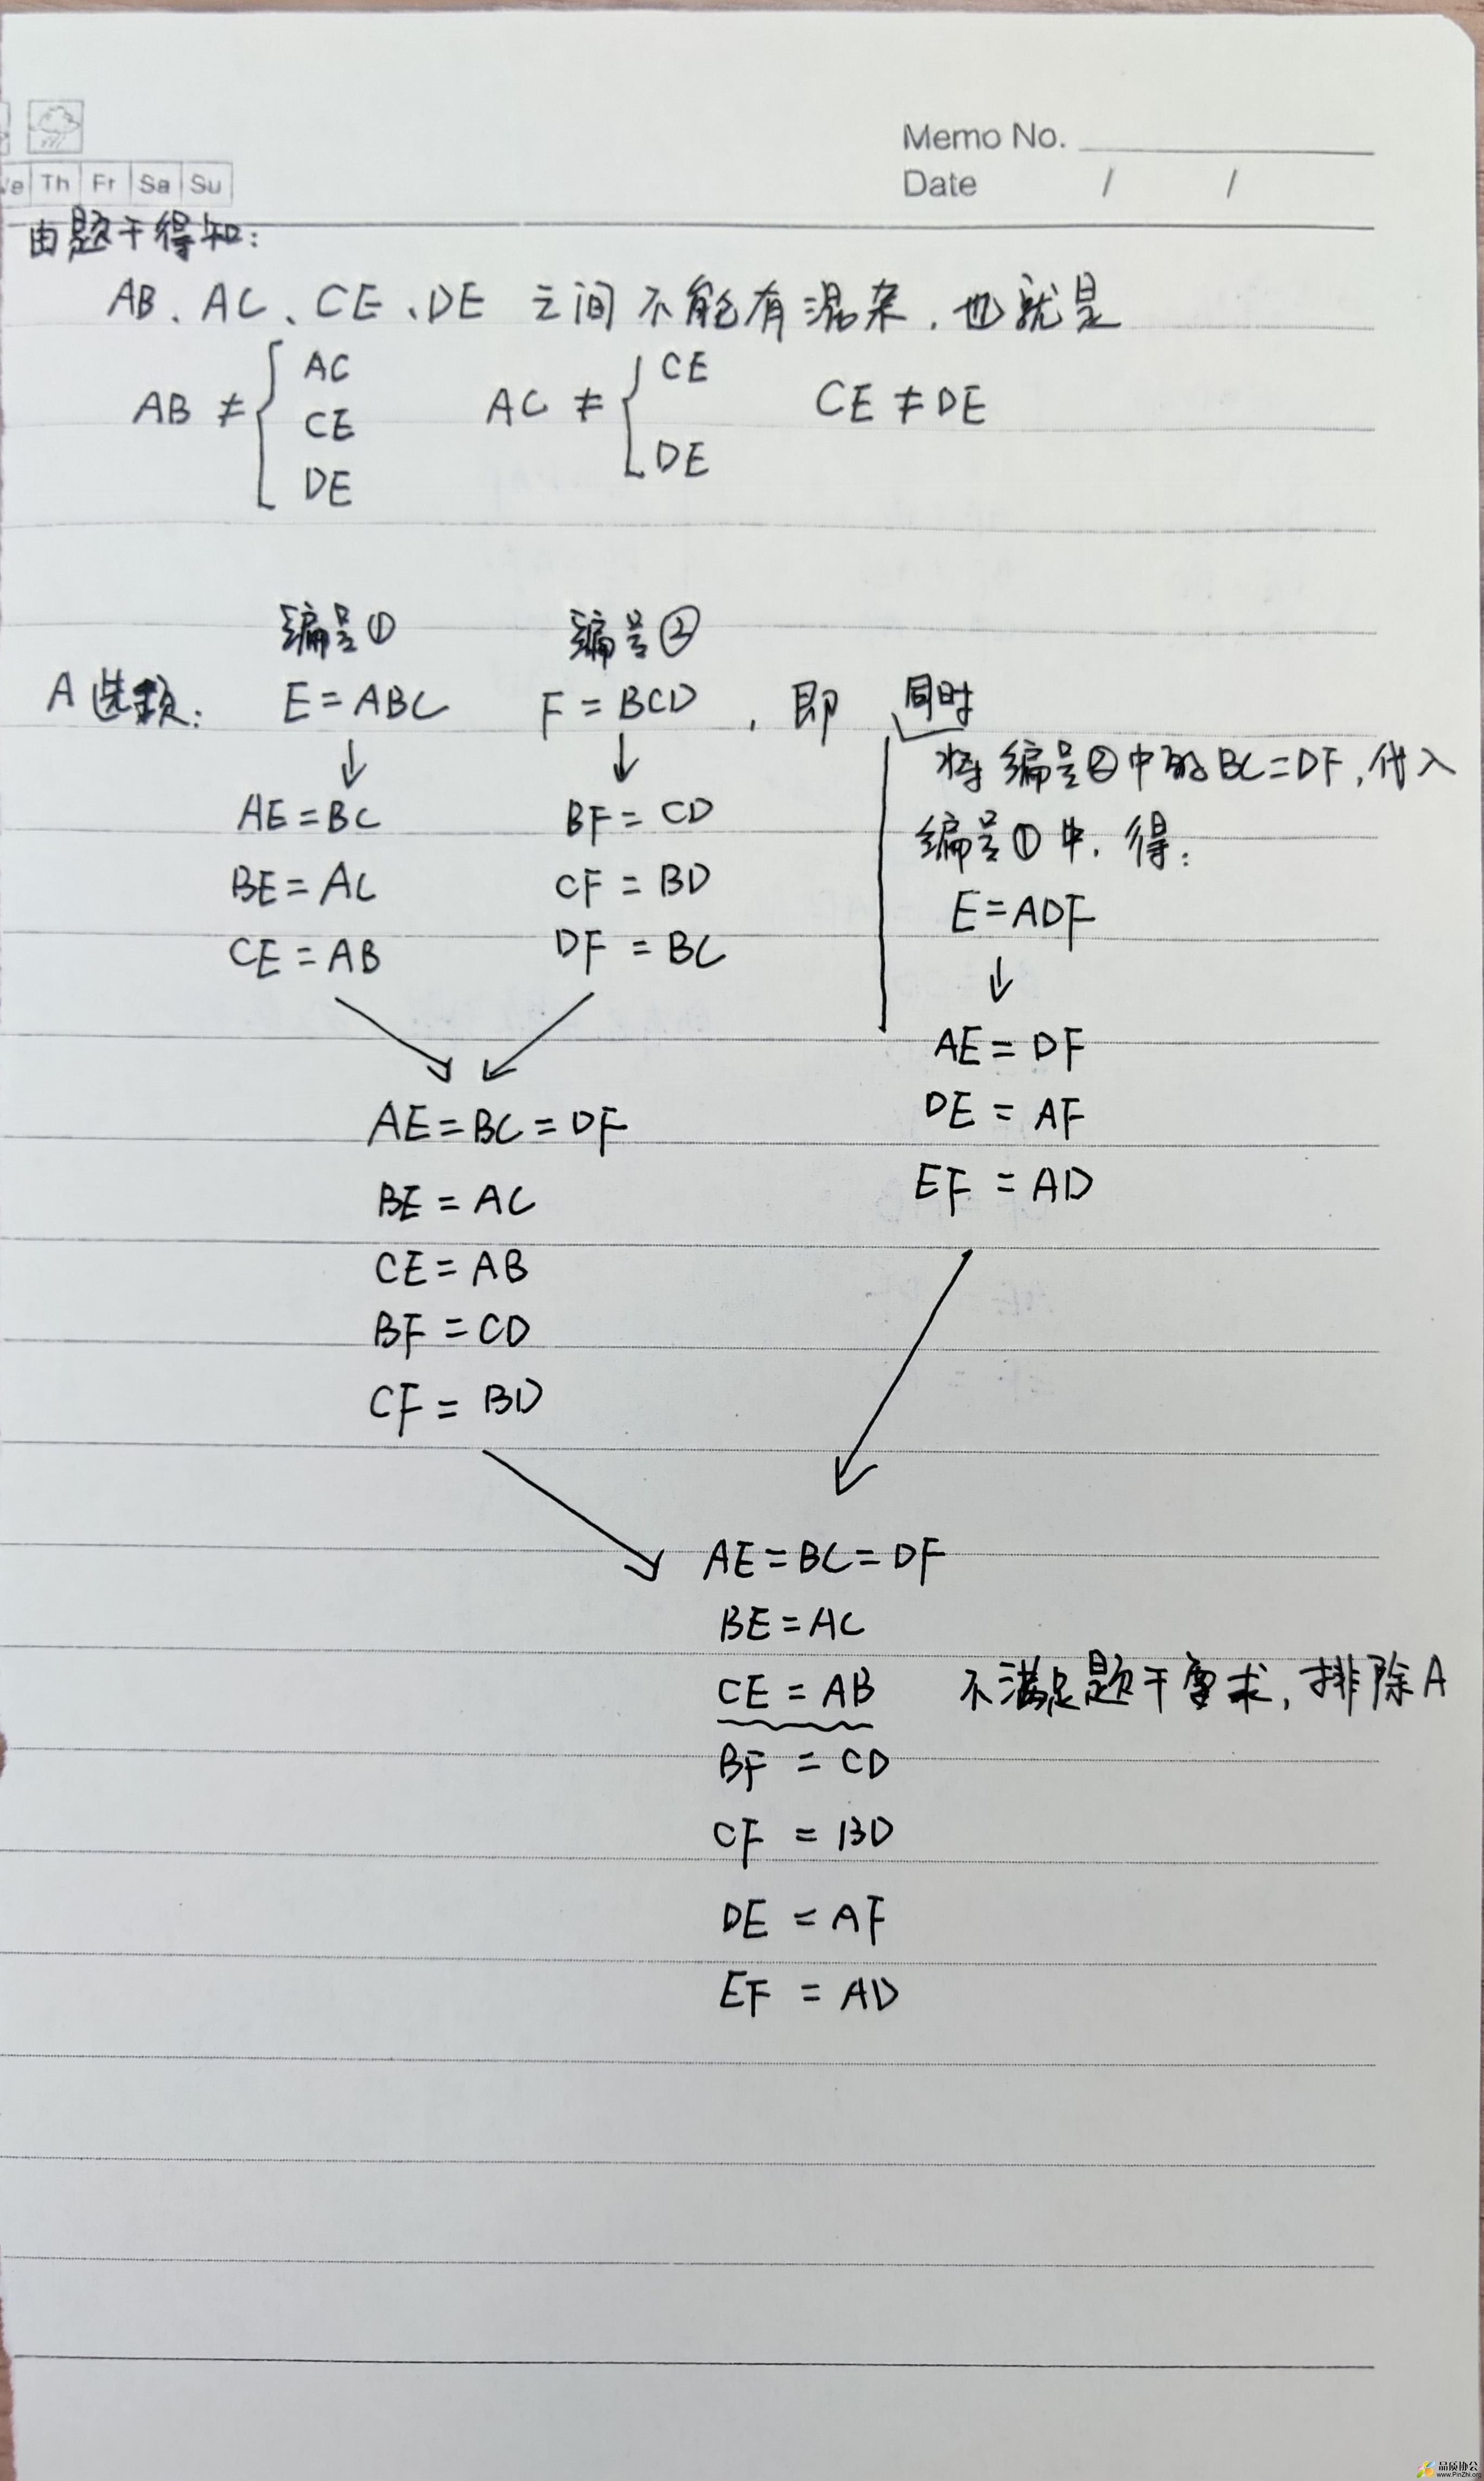 Memo No.
Th Fr Sa Su
Date / /
由题干得知:
AB、AC、CE、DE 之间不能有混杂,也就是
AB ≠ { AC CE DE
AC ≠ { CE DE
CE ≠ DE
编号① 编号②
A选项: E=ABC F=BCD ,即 同时
将编号②中的BC=DF,代入
编号①中,得:
E=ADF
↓
AE=DF
DE=AF
EF=AD
↓ ↓
AE=BC BF=CD
BE=AC CF=BD
CE=AB DF=BC
AE=BC=DF
BE=AC
CE=AB
BF=CD
CF=BD
AE=BC=DF
BE=AC
CE=AB 不满足题干要求,排除A
BF=CD
CF=BD
DE=AF
EF=AD
品质协会
www.PinZhi.org